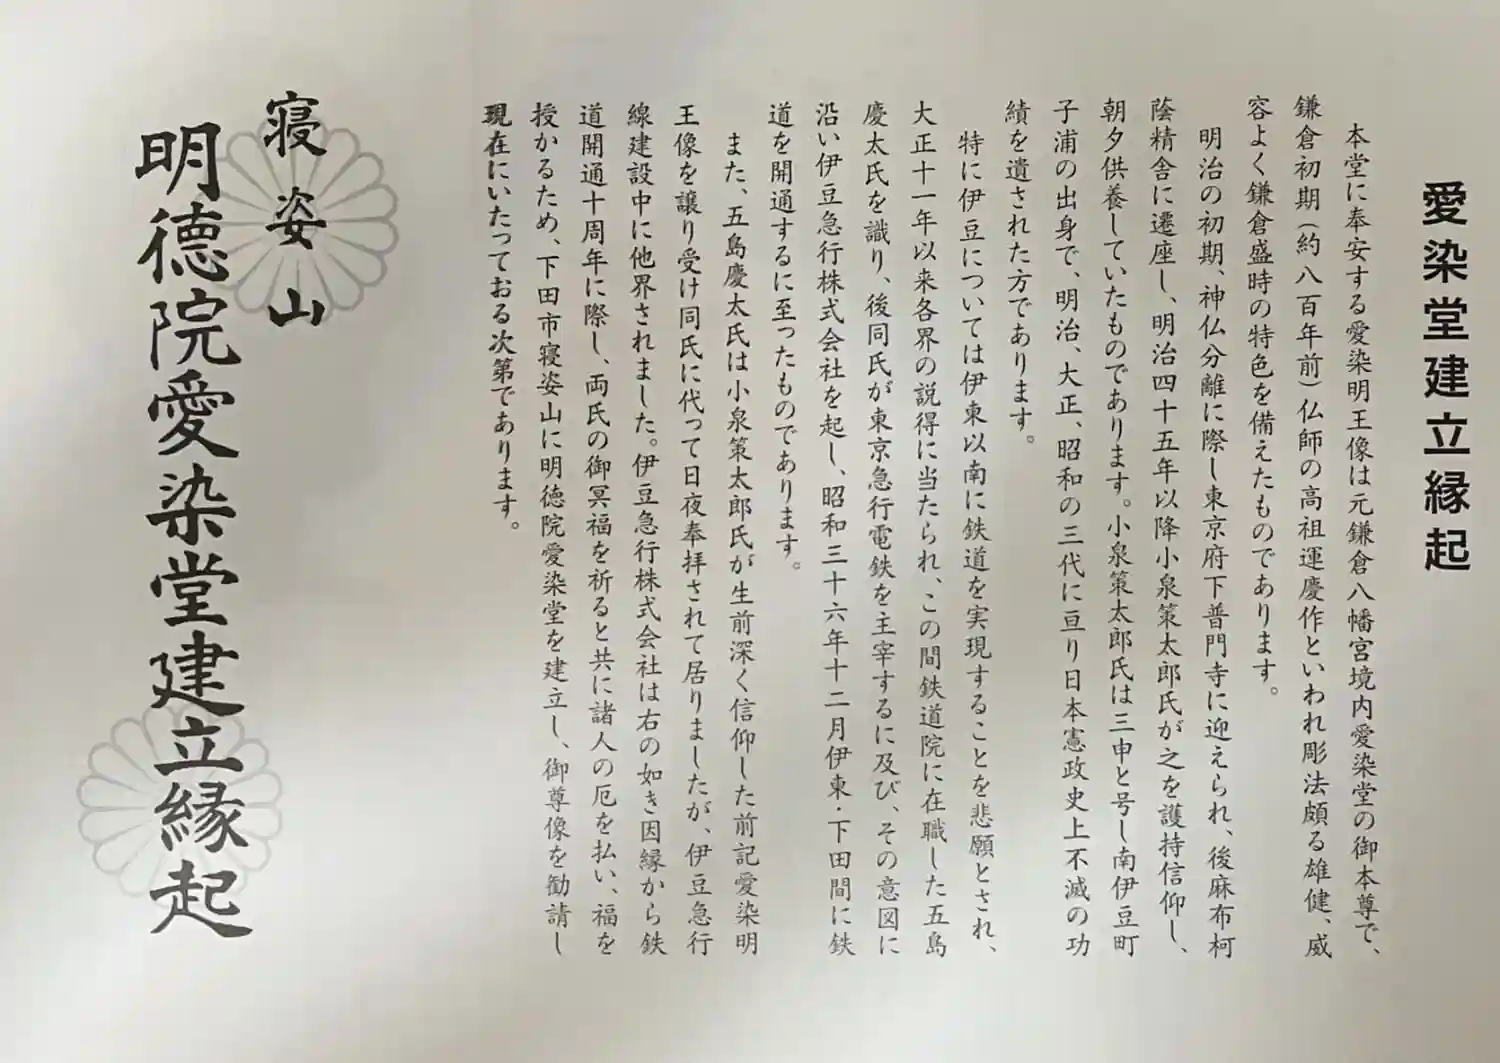 愛染堂建立縁起
本堂に奉安する愛染明王像は元鎌倉八幡宮境内愛染堂の御本尊で、
鎌倉初期（約八百年前）仏師の高祖運慶作といわれ彫法頗る雄健、威
容よく鎌倉盛時の特色を備えたものであります。
明治の初期、神仏分離に際し東京府下普門寺に迎えられ、後麻布柯
蔭精舎に遷座し、明治四十五年以降小泉策太郎氏が之を護持信仰し、
朝夕供養していたものであります。小泉策太郎氏は三申と号し南伊豆町
子浦の出身で、明治、大正、昭和の三代に亘り日本憲政史上不滅の功
績を遺された方であります。
特に伊豆については伊東以南に鉄道を実現することを悲願とされ、
大正十一年以来各界の説得に当たられ、この間鉄道院に在職した五島
慶太氏を識り、後同氏が東京急行電鉄を主宰するに及び、その意図に
沿い伊豆急行株式会社を起し、昭和三十六年十二月伊東・下田間に鉄
道を開通するに至ったものであります。
また、五島慶太氏は小泉策太郎氏が生前深く信仰した前記愛染明
王像を譲り受け同氏に代って日夜奉拝されて居りましたが、伊豆急行
線建設中に他界されました。伊豆急行株式会社は右の如き因縁から鉄
道開通十周年に際し、両氏の御冥福を祈ると共に諸人の厄を払い、福を
授かるため、下田市寝姿山に明徳院愛染堂を建立し、御尊像を勧請し
現在にいたっておる次第であります。
寝姿山
明徳院愛染堂建立縁起